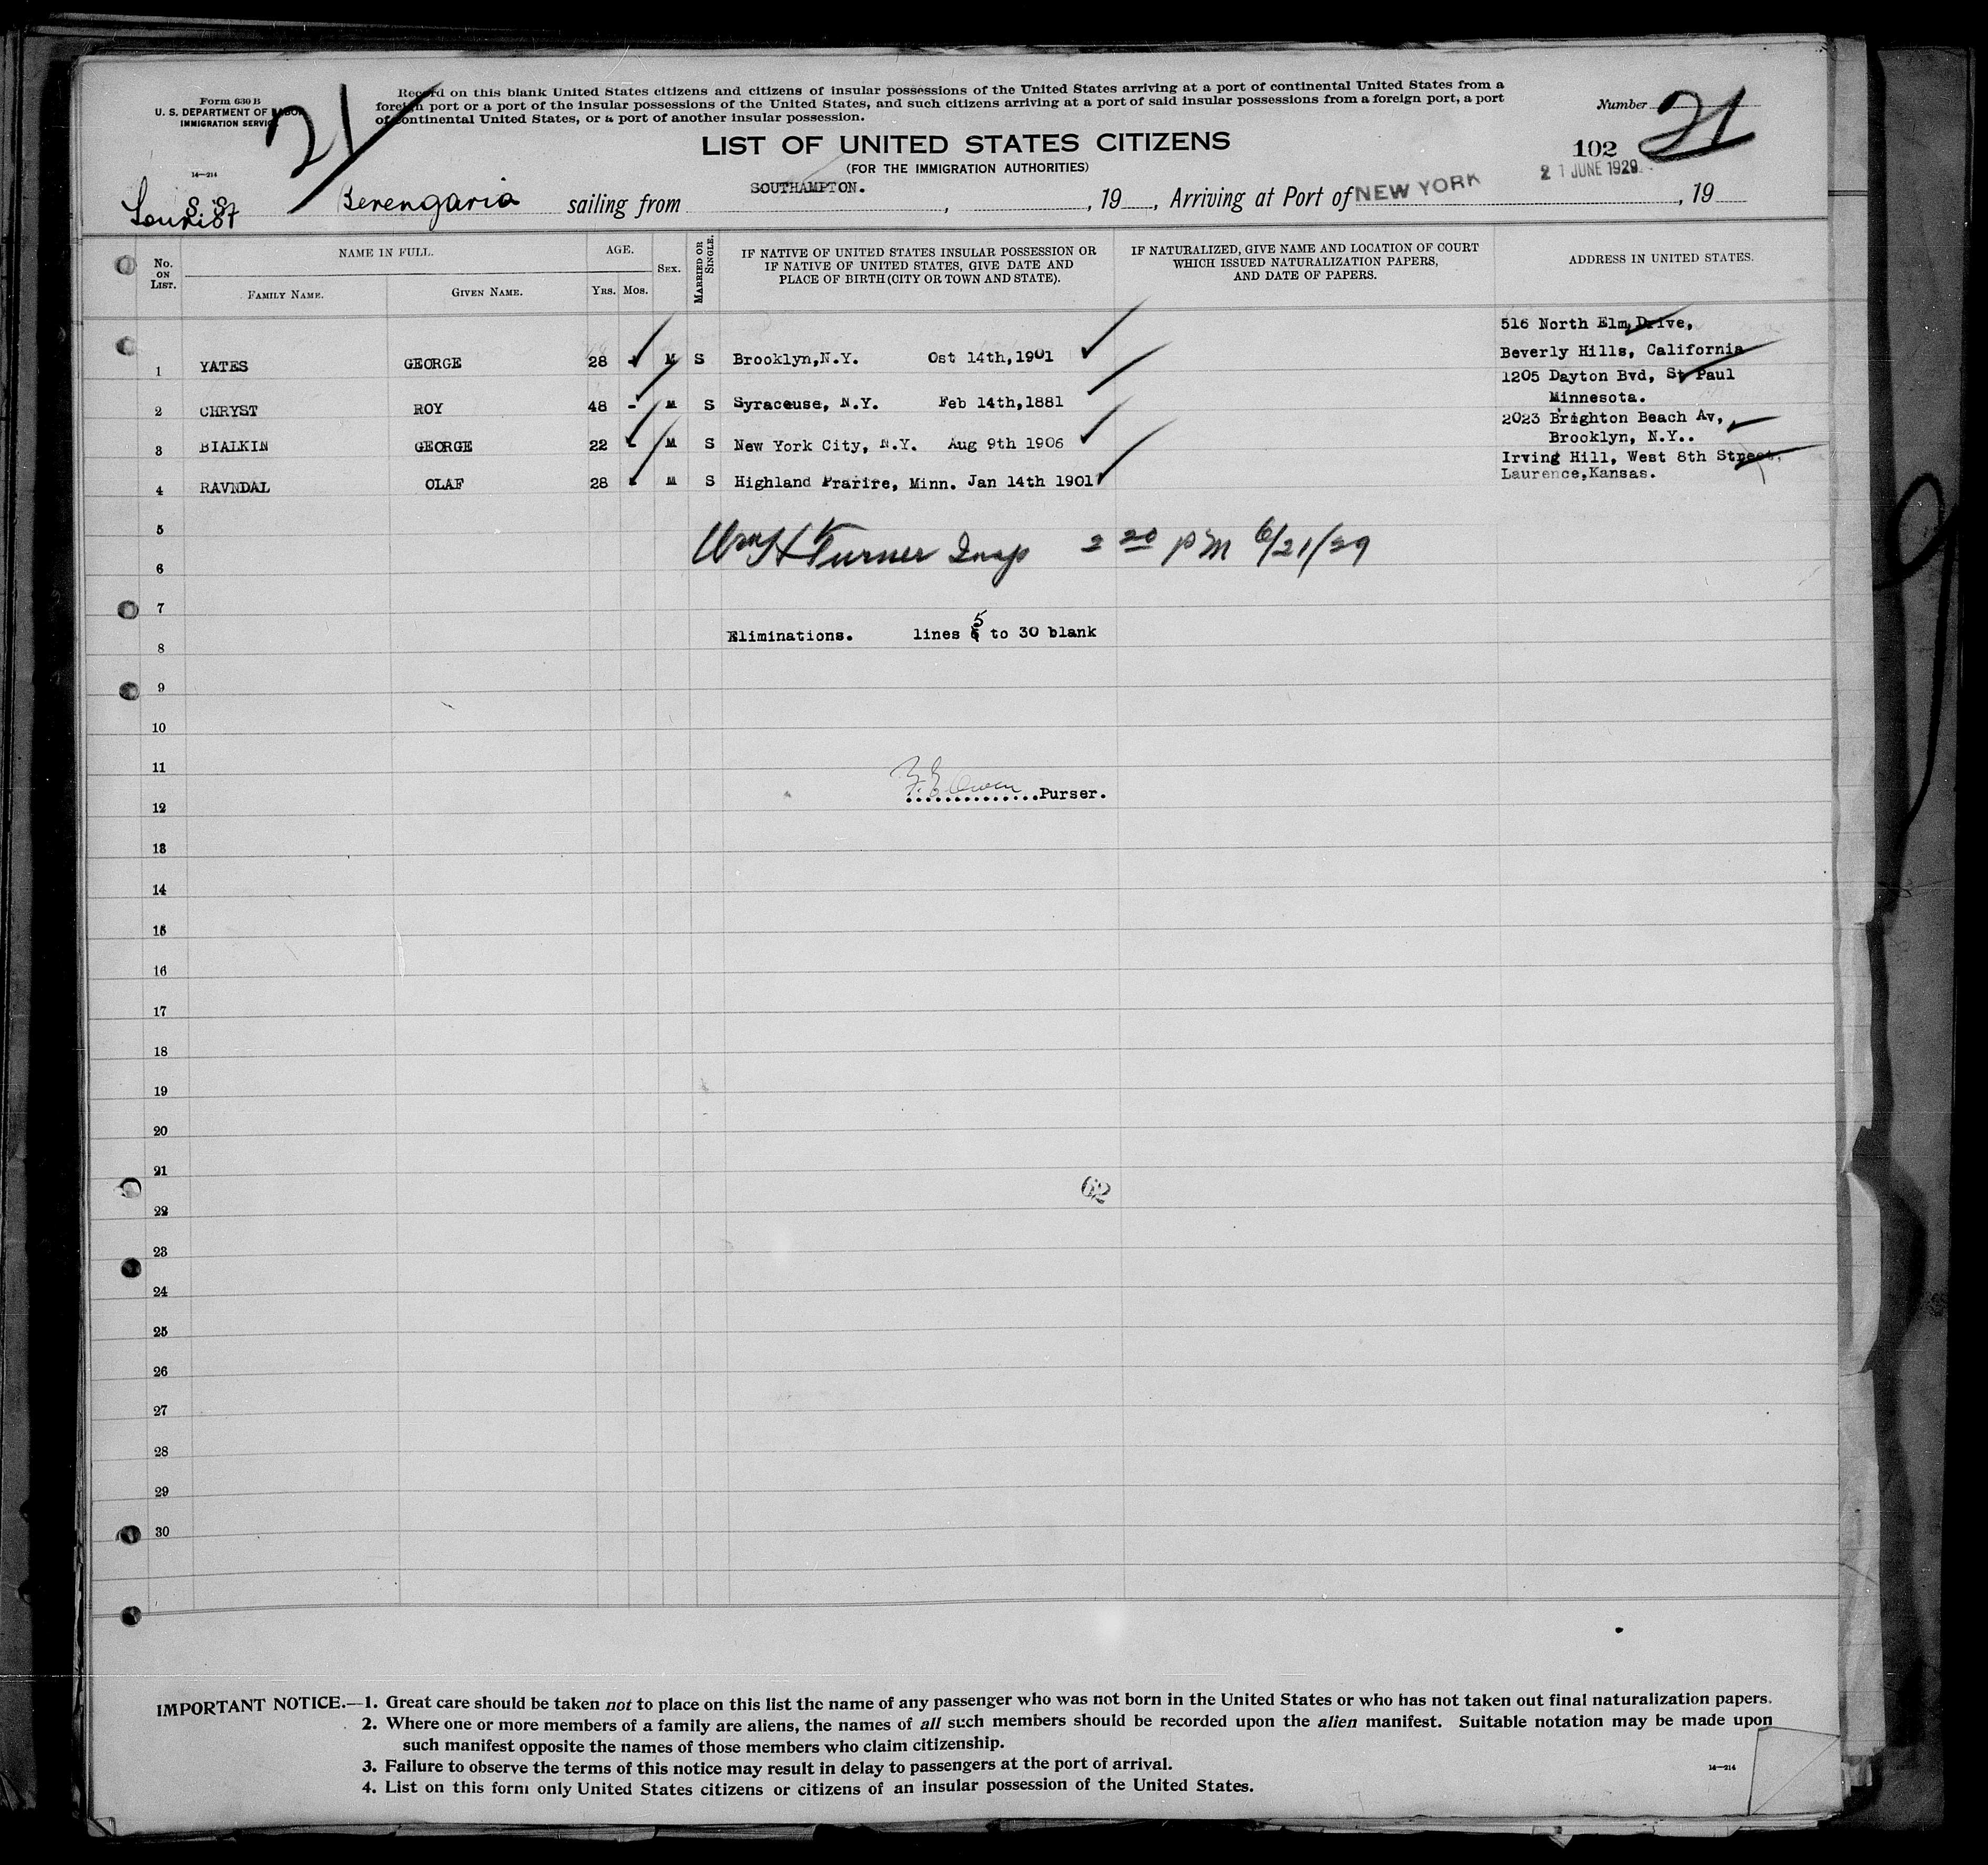 Form 630 B
U. S. DEPARTMENT OF LABOR
IMMIGRATION SERVICE
14—214
21
Record on this blank United States citizens and citizens of insular possessions of the United States arriving at a port of continental United States from a
foreign port or a port of the insular possessions of the United States, and such citizens arriving at a port of said insular possessions from a foreign port, a port
of continental United States, or a port of another insular possession.
Number 21
LIST OF UNITED STATES CITIZENS
(FOR THE IMMIGRATION AUTHORITIES)
102
21 JUNE 1929
S. S. Berengaria sailing from SOUTHAMPTON. , , 19 , Arriving at Port of NEW YORK , 19
Tourist
No. ON LIST.
NAME IN FULL.
FAMILY NAME.
GIVEN NAME.
AGE.
YRS. MOS.
SEX.
MARRIED OR SINGLE.
IF NATIVE OF UNITED STATES INSULAR POSSESSION OR
IF NATIVE OF UNITED STATES, GIVE DATE AND
PLACE OF BIRTH (CITY OR TOWN AND STATE).
IF NATURALIZED, GIVE NAME AND LOCATION OF COURT
WHICH ISSUED NATURALIZATION PAPERS,
AND DATE OF PAPERS.
ADDRESS IN UNITED STATES.
1 YATES GEORGE 28 - M S Brooklyn,N.Y. Ost 14th,1901 516 North Elm Drive,
Beverly Hills, California
2 CHRYST ROY 48 - M S Syraceuse, N.Y. Feb 14th,1881 1205 Dayton Bvd, St Paul
Minnesota.
3 BIALKIN GEORGE 22 - M S New York City, N.Y. Aug 9th 1906 2023 Brighton Beach Av,
Brooklyn, N.Y..
4 RAVNDAL OLAF 28 - M S Highland Prarire, Minn. Jan 14th 1901 Irving Hill, West 8th Street,
Laurence,Kansas.
5
Wm H Turner Insp 2 20 PM 6/21/29
6
7
Eliminations. lines 5 to 30 blank
8
9
10
11
F. E. Owen Purser.
12
13
14
15
16
17
18
19
20
21
62
22
23
24
25
26
27
28
29
30
IMPORTANT NOTICE.—1. Great care should be taken not to place on this list the name of any passenger who was not born in the United States or who has not taken out final naturalization papers.
2. Where one or more members of a family are aliens, the names of all such members should be recorded upon the alien manifest. Suitable notation may be made upon
such manifest opposite the names of those members who claim citizenship.
3. Failure to observe the terms of this notice may result in delay to passengers at the port of arrival.
4. List on this form only United States citizens or citizens of an insular possession of the United States.
14—214